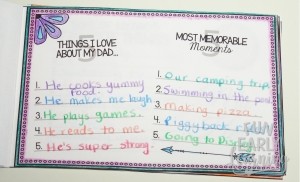 5
THINGS I LOVE
ABOUT MY DAD...
1. He cooks yummy
foods.
2. He makes me laugh
3. He plays games.
4. He reads to me.
5. He's super strong.
5
MOST MEMORABLE
Moments
1. Our camping trip
2. Swimming in the pool
3. Making pizza
4. Piggyback
5. Going to